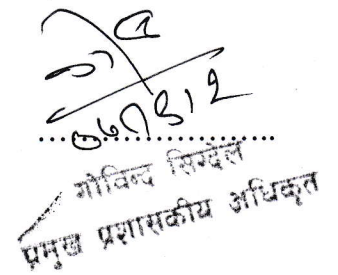 गोविन्द सिग्देल
प्रमुख प्रशासकीय अधिकृत